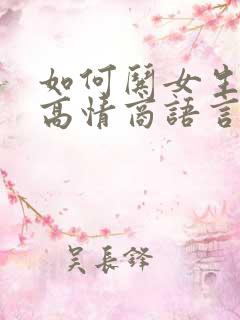 如何關女生
高情商語言
吴長鋒